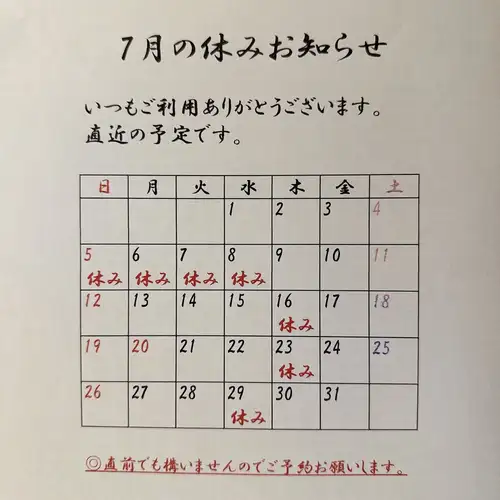 7月の休みお知らせ
いつもご利用ありがとうございます。
直近の予定です。
日 月 火 水 木 金 土
1 2 3 4
5 6 7 8 9 10 11
休み 休み 休み 休み
12 13 14 15 16 17 18
休み
19 20 21 22 23 24 25
休み
26 27 28 29 30 31
休み
◎直前でも構いませんのでご予約お願いします。